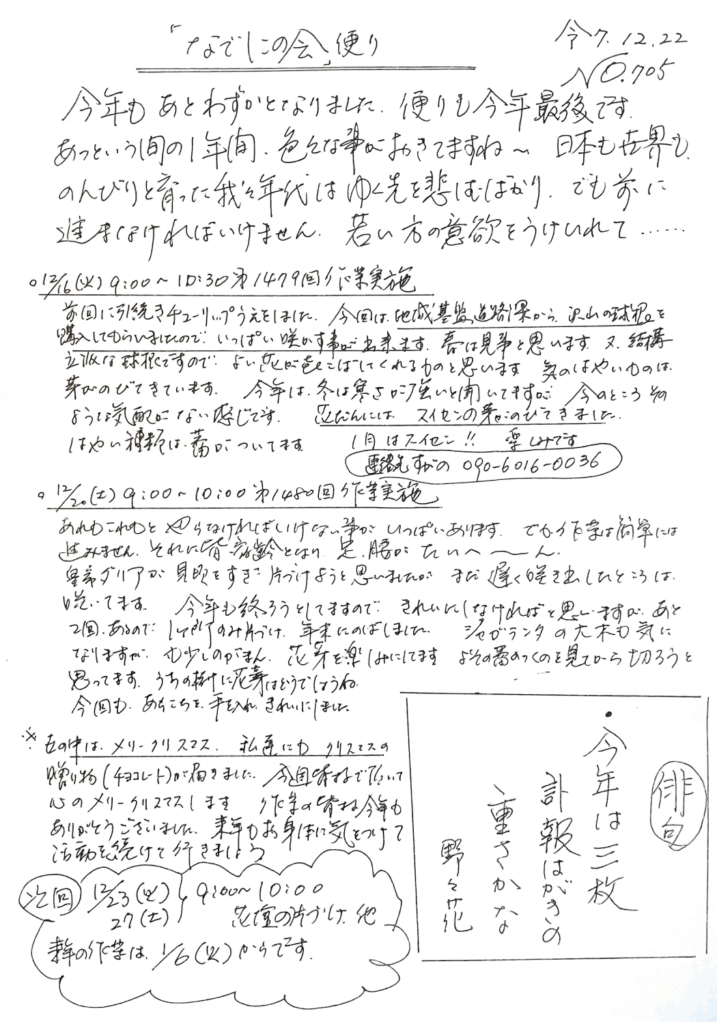 「なでしこの会」便り
令7.12.22
No.705
今年もあとわずかとなりました。便りも今年最後です。
あっという間の1年間、色々な事がおきてますね〜 日本も世界も、
のんびりと育った我々年代はゆく先を悲しむばかり、でも前に
進まなければいけません。若い方の意欲をうけいれて……
○12/16(火)9:00〜10:30 第1479回作業実施
前回に引続きチューリップうえをしました。今回は、地域基盤、道路県から、沢山の球根を
購入してもらいましたので、いっぱい咲かす事が出来ます。春は見事と思います 又、結構
立派な球根ですので、よい花が をこばしてくれるものと思います 気のはやいものは、
芽がのびてきています。今年は、冬は寒さが強いと聞いてますが、今のところその
ような気配がない感じです。花だんには、スイセンの芽がのびてきました。
はやい種類は、蕾がついてます。 1月はスイセン!! 楽しみです
連絡先 すがの 090-6016-0036
○12/20(土)9:00〜10:00 第1480回作業実施
あれもこれもと やらなければいけない事が いっぱいあります。でも作業は簡単には
進みません。それに皆高齢となり 足、腰が たいへ〜〜ん。
皇帝ダリアが 見頃をすぎ 片づけようと思いましたが まだ 遅く咲き出したところは、
咲いてます。今年も終ろうとしてますので きれいにしなければと思いますが、あと
2回、あるので のみ片づけ、年末にのばしました。ジャガランタの大木も気に
なりますが、も少しのがまん、花芽を楽しみにしてます よその蕾のつくのを見てから切ろうと
思ってます。うちの樹に花芽はどうでしょうね
今回も、あちこちを、手を入れ、きれいにしました
※世の中は、メリークリスマス、私達にも クリスマスの
贈り物(チョコレート)が届きました。今回皆様で頂いて
心のメリークリスマスします 作業の皆様今年も
ありがとうございました。来年もお身体に気をつけて
活動を続けて行きましょう
次回 12/23(火) 27(土) 9:00〜10:00
花壇の片づけ、他
来年の作業は、1/6(火)からです。
俳句
・今年は三枚
訃報はがきの
重さかな
野々花